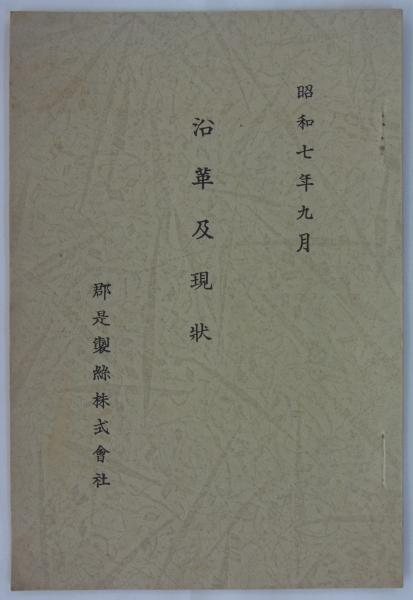 昭和七年九月
沿革及現狀
郡是製絲株式會社